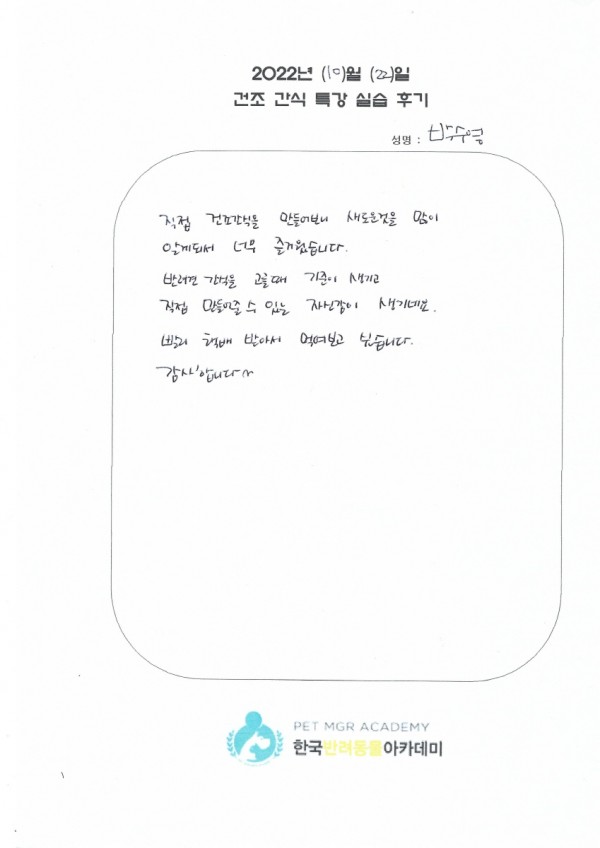 2022년 (10)월 (22)일
건조 간식 특강 실습 후기
성명 : 박수영
직접 건조간식을 만들어보니 새로운것을 많이
알게되서 너무 즐거웠습니다.
반려견 간식을 고를때 기준이 생기고
직접 만들어줄 수 있는 자신감이 생기네요.
빨리 택배 받아서 먹여보고 싶습니다.
감사합니다~
PET MGR ACADEMY
한국반려동물아카데미